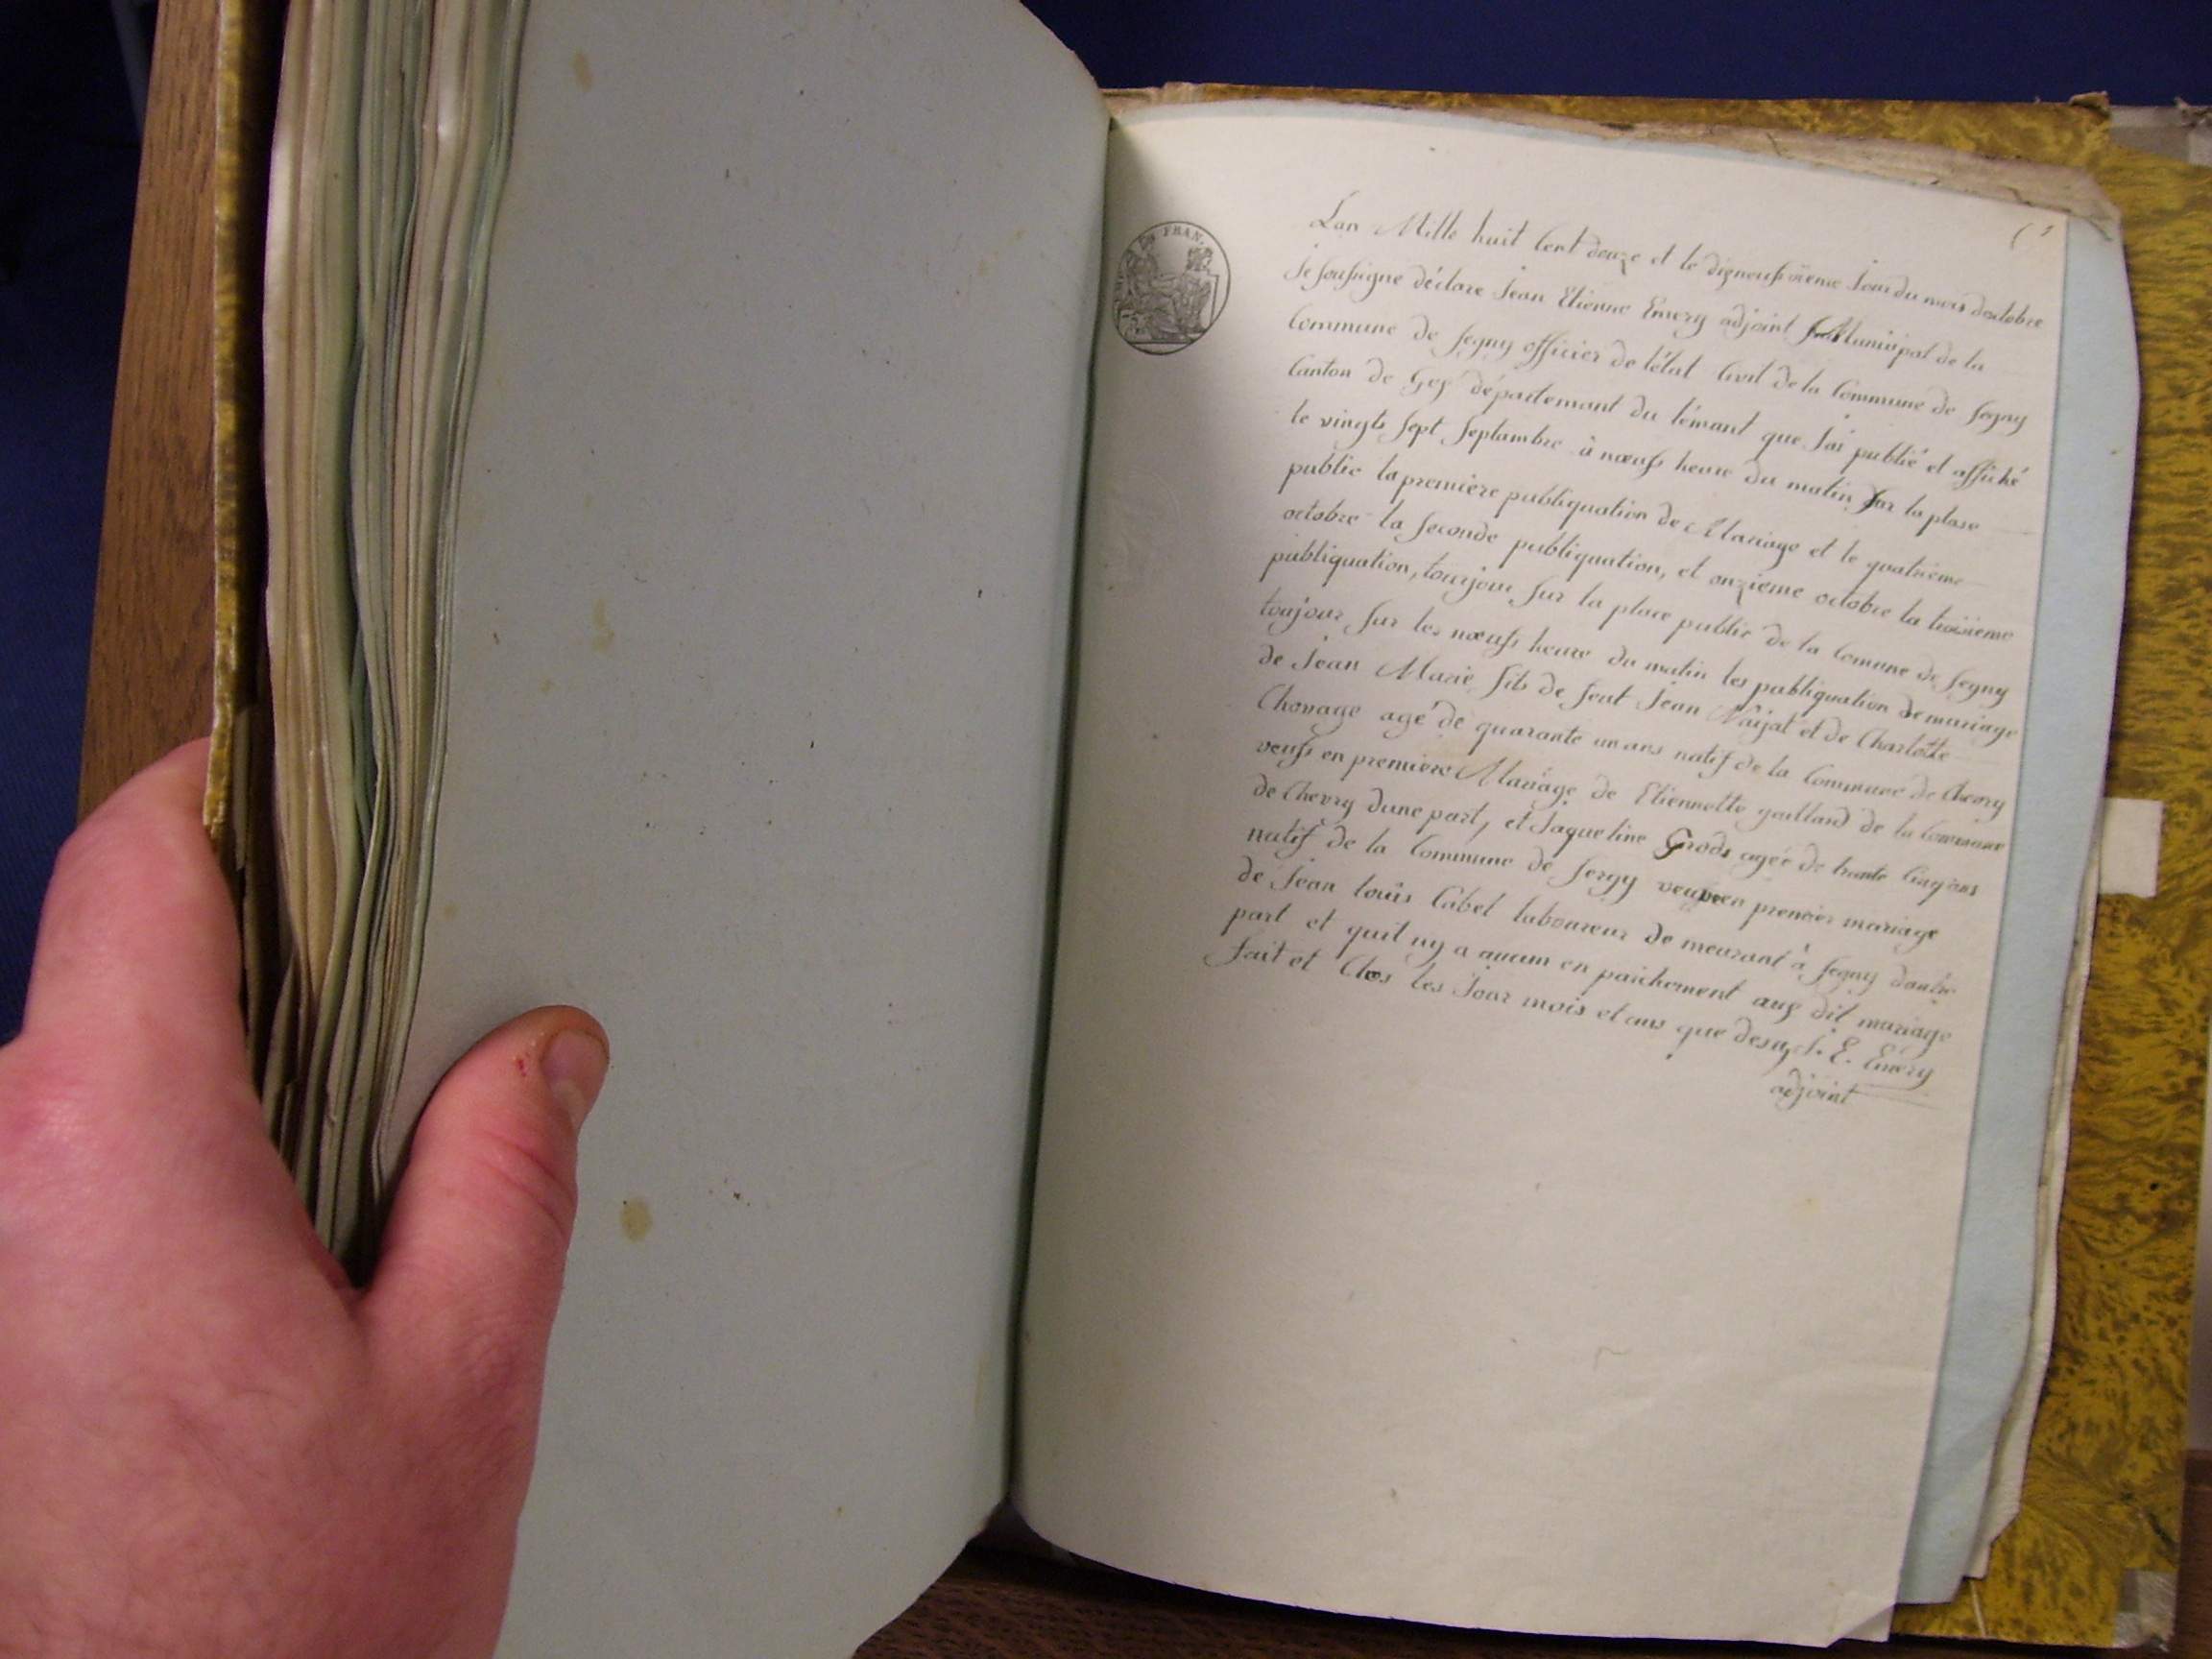 FRAN.
Lan Mille huit Cent douze et le dizneufvieme Jour du mois doctobre
Je soussigne déclare Jean Etienne Emery adjoint Municipal de la
Commune de Segny officier de l'état Civil de la Commune de Segny
Canton de Gex département du lémant que Jai publié et affiché
le vingts sept Septambre à noeufs heure du matin sur la plase
public la premiere publiquation de Mariage et le quatrieme
octobre la seconde publiquation, et onzieme octobre la troisieme
publiquation, toujour sur la place public de la Comune de Segny
toujour sur les noeufs heure du matin les publiquation de mariage
de Jean Marie fils de feut Jean et de Charlotte
agé de quarante un ans natif de la Commune de Chevry
veufs en premiere Mariage de Etiennette gaillard de la Commune
de Chevry dune part, et Jaqueline Grods agée de trante Cinq ans
natif de la Commune de Sergy en premier mariage
de Jean louis Cabel laboureur de meurant à Segny dautre
part et quil ny a aucun en paichement aux dit mariage
fait et Clos les Jour mois et ans que desus J. E. Emery
adjoint